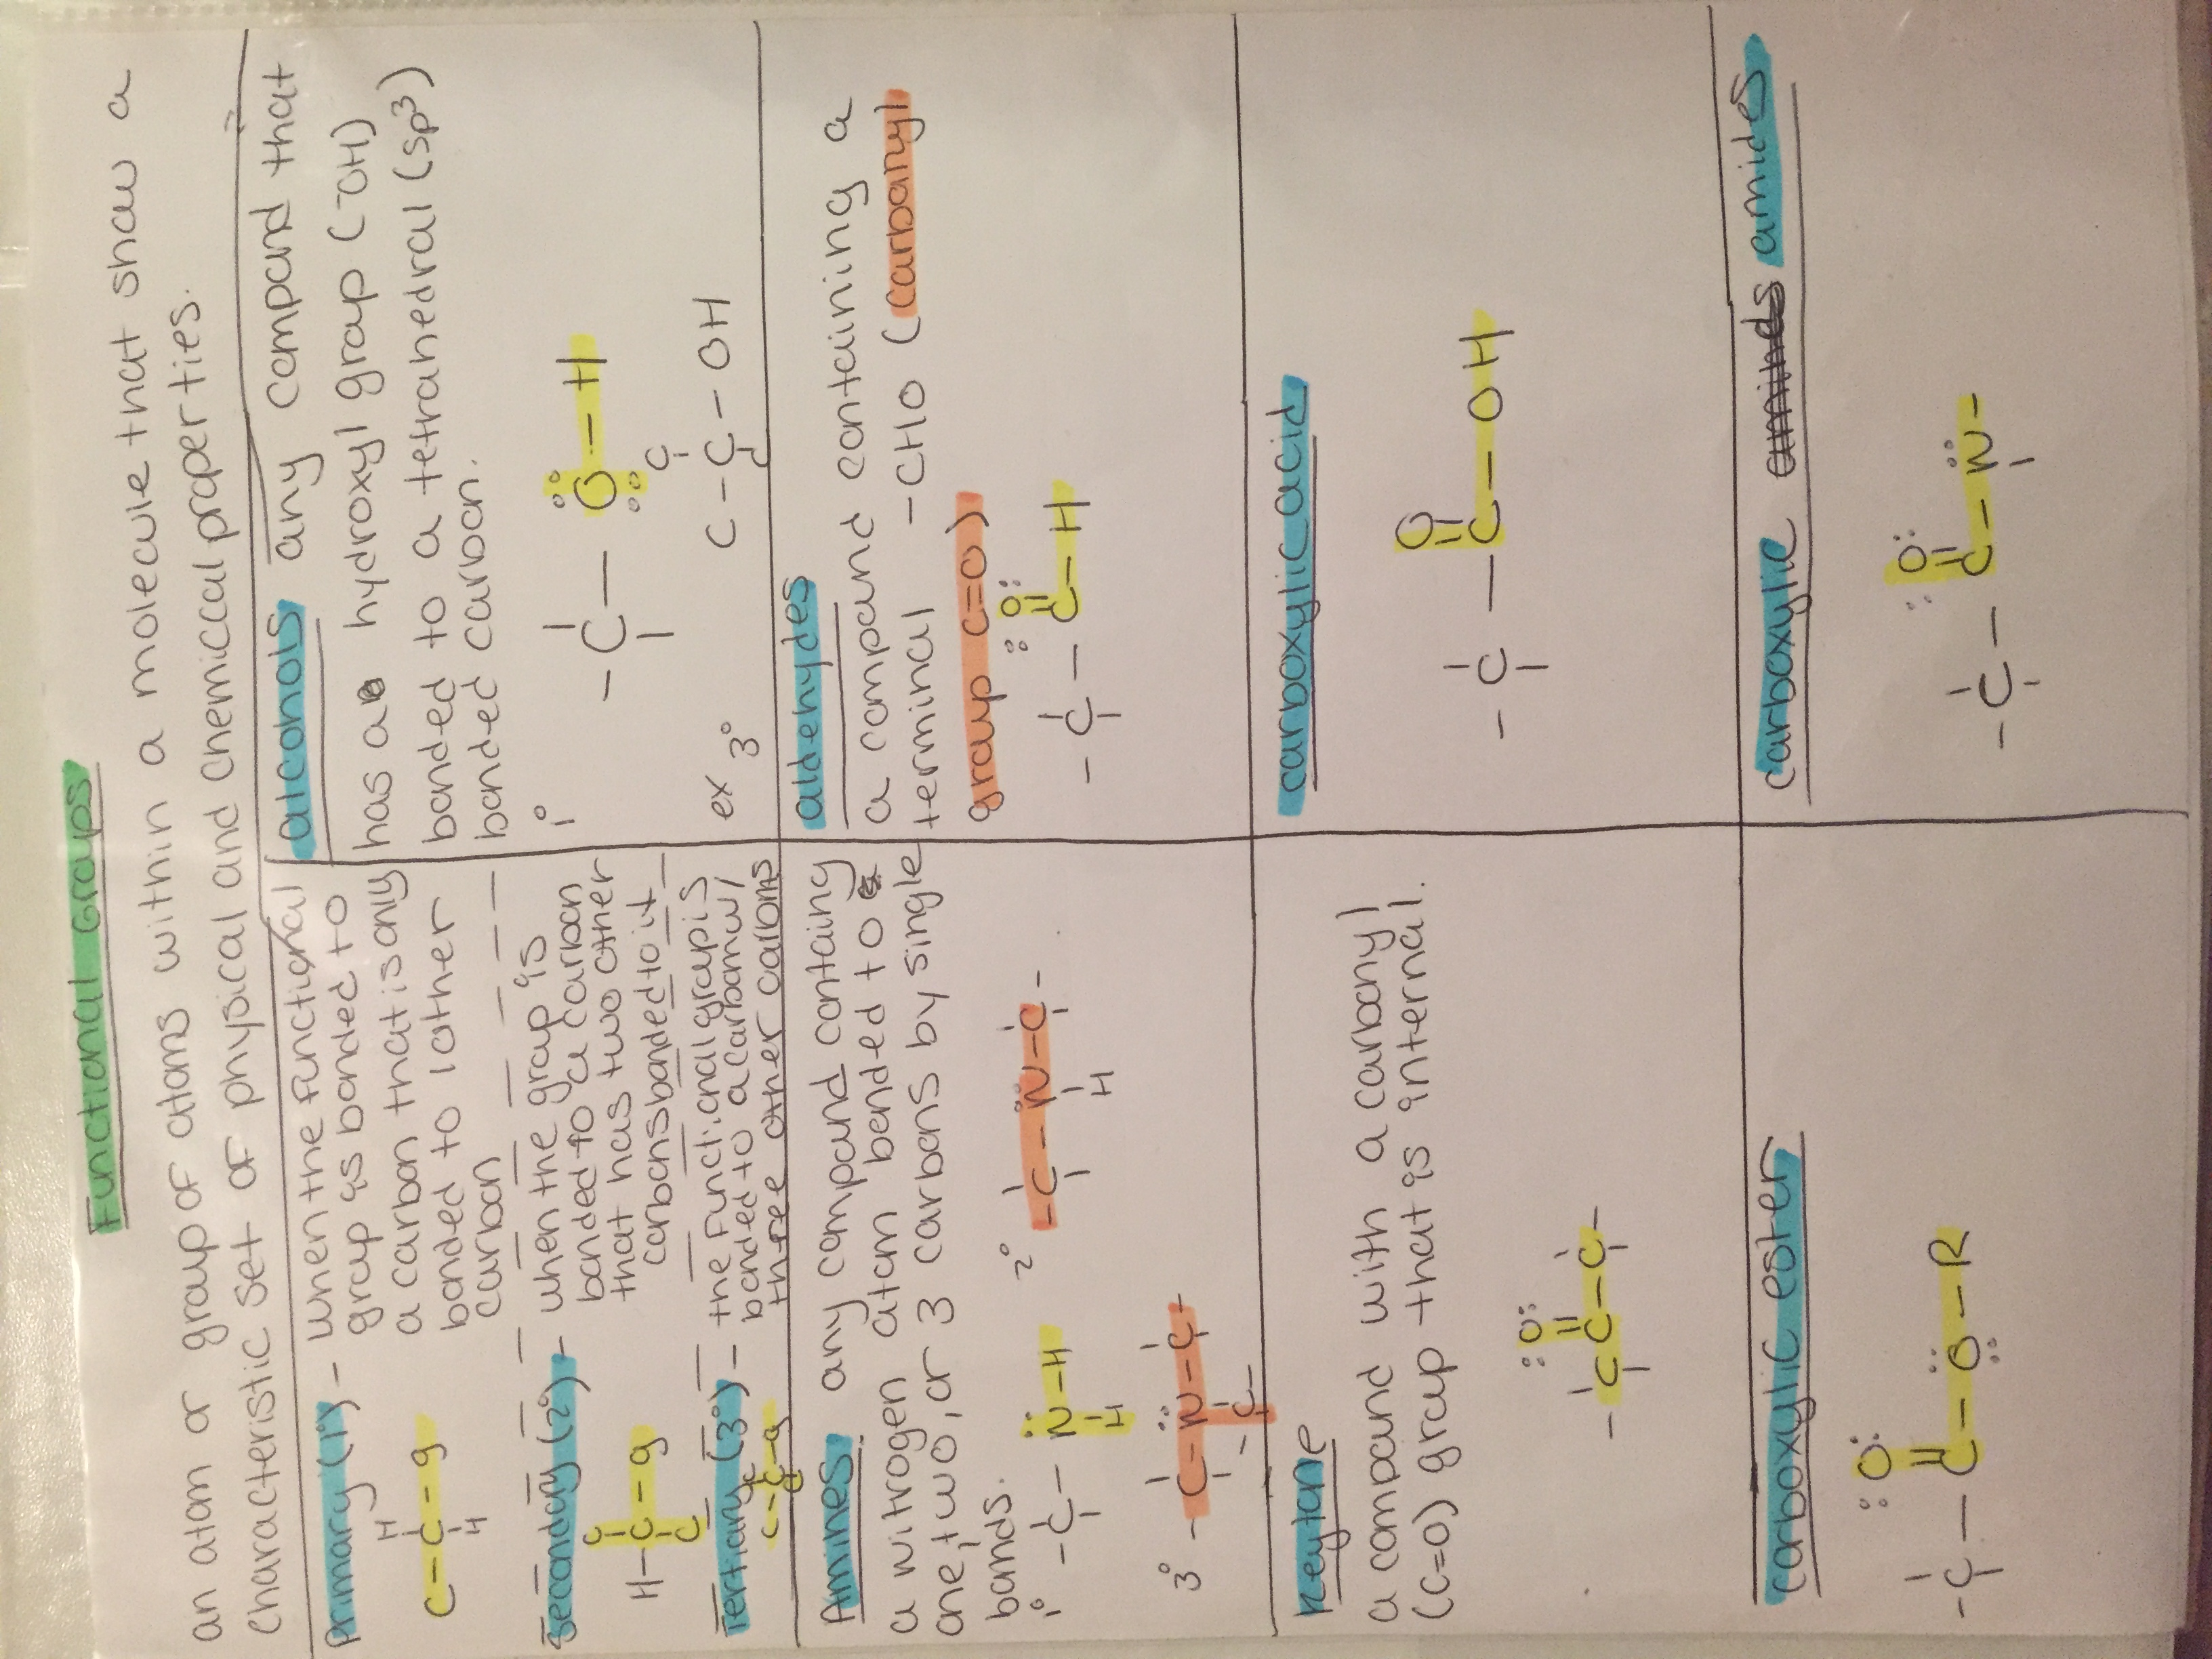 Functional Groups
an atom or group of atoms within a molecule that show a
characteristic set of physical and chemical properties.
Primary (1°) - when the functional
group is bonded to
a carbon that is only
bonded to 1 other
carbon
H
C-C-g
H
Secondary (2°) - when the group is
bonded to a carbon
that has two other
carbons bonded to it
C
H-C-g
C
Tertiary (3°) - the functional group is
bonded to a carbon w/
three other carbons
C
C-C-g
C
alcohols any compound that
has a hydroxyl group (-OH)
bonded to a tetrahedral (sp³)
bonded carbon.
1°
-C-O-H
ex 3°
C
C-C-OH
C
Amines any compound containing
a nitrogen atom bonded to
one, two, or 3 carbons by single
bonds.
1° -C-N-H
H
2° -C-N-C-
H
3° -C-N-C-
-C-
aldehydes
a compound containing a
terminal -CHO (carbonyl
group C=O)
O
-C-C-H
Keytone
a compound with a carbonyl
(C=O) group that is internal.
O
-C-C-C-
carboxylic acid
O
-C-C-OH
carboxylic ester
O
-C-C-O-R
carboxylic aminds amides
O
-C-C-N-